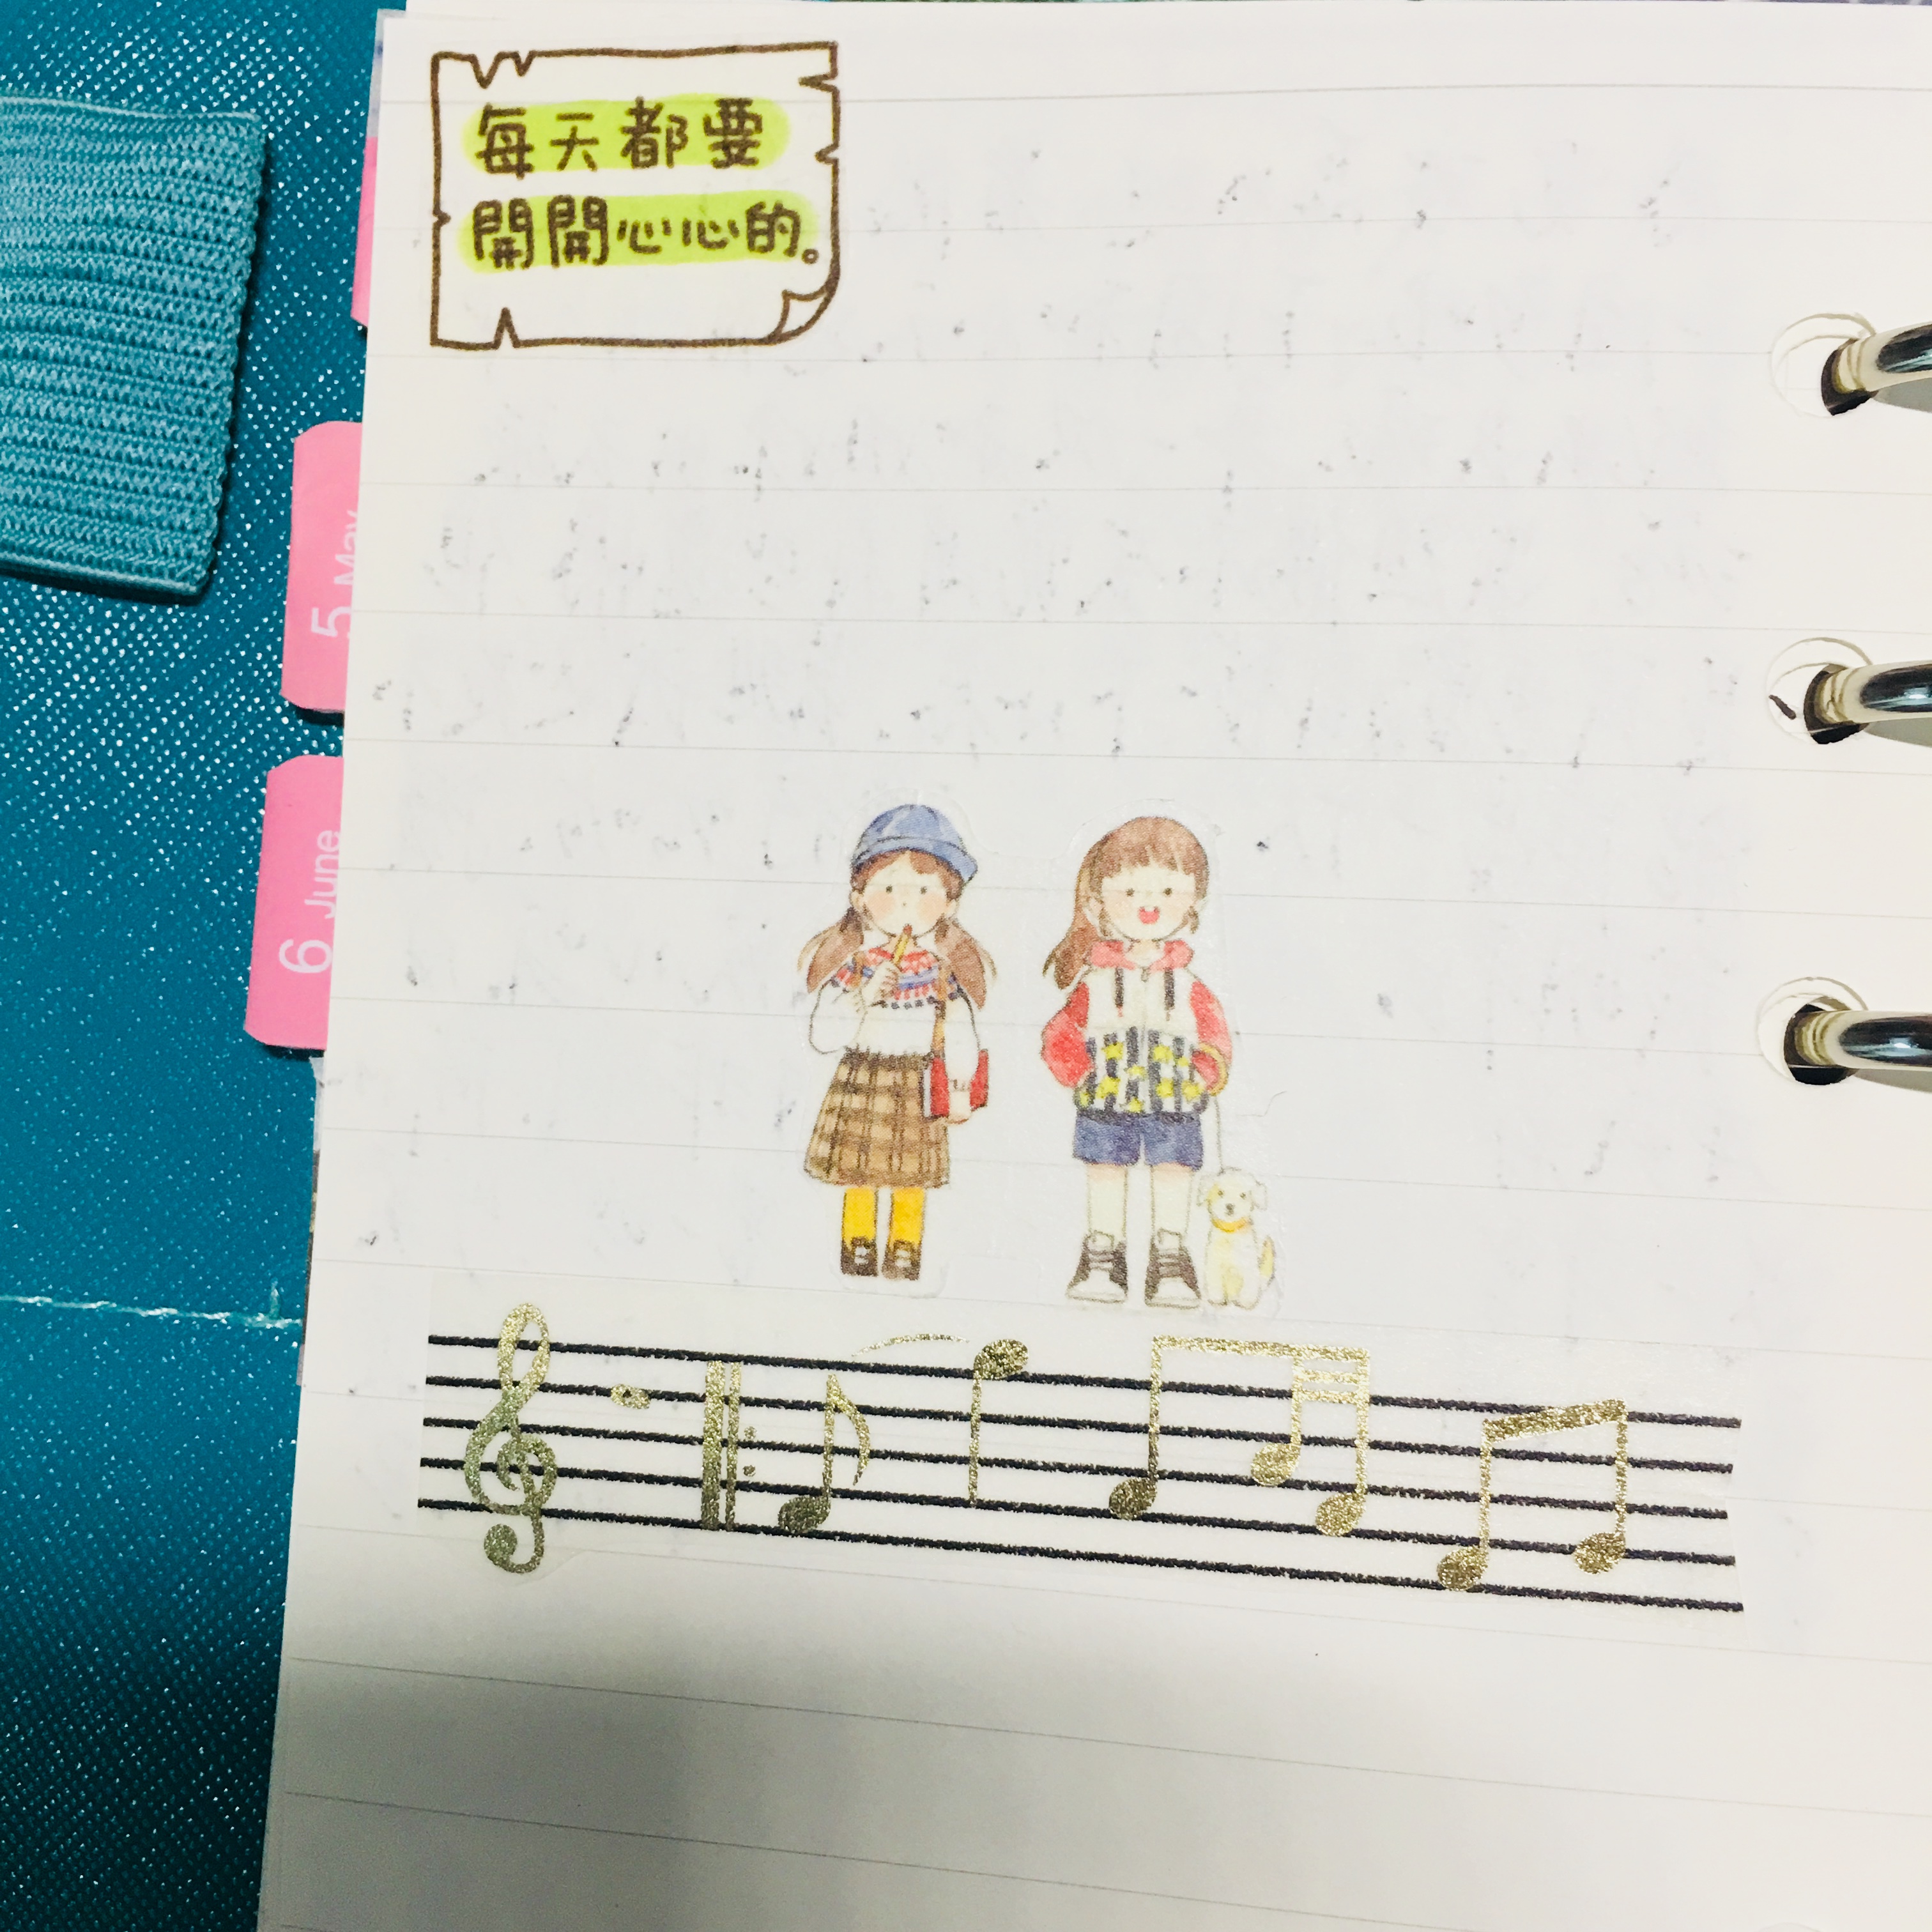 每天都要
開開心心的。
5 May
6 June